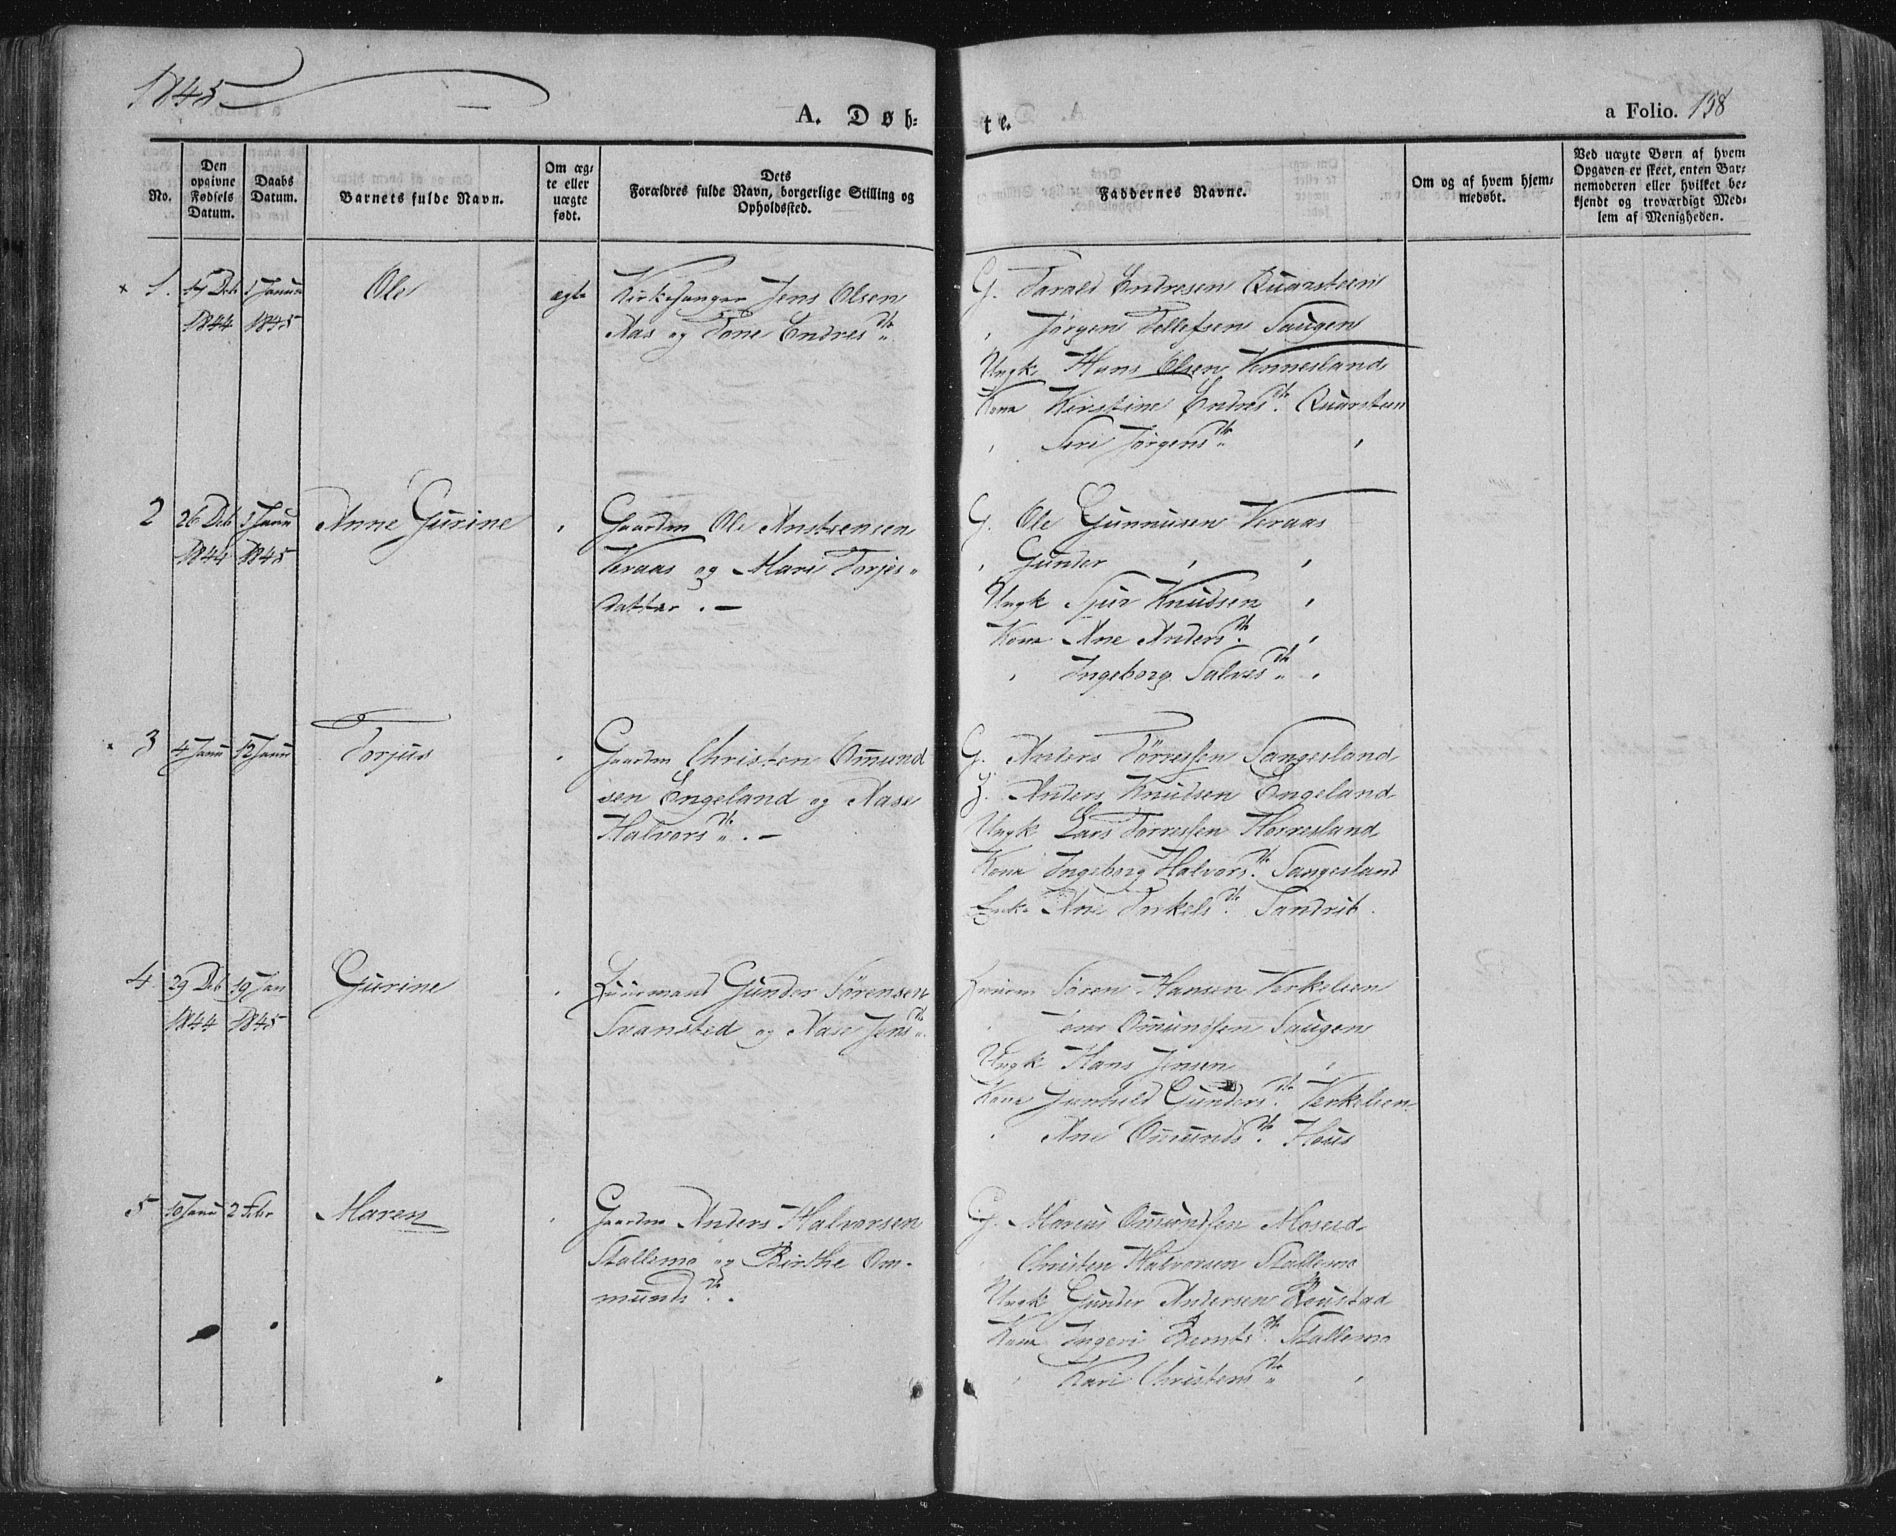 1845
A. Døb=
te.
a Folio. 158
No.
Den opgivne Fødsels Datum.
Daabs Datum.
Barnets fulde Navn.
Om æg=
te eller
uægte
født.
Dets
Forældres fulde Navn, borgerlige Stilling og
Opholdssted.
Faddernes Navne.
Om og af hvem hjem=
medøbt.
Ved uægte Børn af hvem
Opgaven er skeet, enten Bar=
nemoderen eller hvilket be=
kjendt og troværdigt Med=
lem af Menigheden.
1. Dcb 1844 1 Januar 1845
Ole
ægte
Kirkesanger Jens Olsen
Aas og Tone Endres dtr.
G. Tarald Endresen Quarsteen
" Jørgen Tellefsen Saugen
Ungk. Hans Olsen Vennesland
Kone Kirstine Endres dtr. Quarsteen
" Siri Jørgens dtr. "
2 26 Dcb 1844 Janu 1845
Anne Gurine
"
Gaardm Ole
Keraas og Mari Torjus
datter. —
G. Ole Gunnusen Keraas
" Gunder " "
Ungk Sjur Knudsen "
Kone Ane Anders dtr. "
" Ingeborg Salves dtr. "
3 4 Janu 12 Janu
Torjus
"
Gaardm Christen Omund
sen Engeland og Aase
Halvors dtr. —
G. Anders Tørresen Sangesland
G. Anders Knudsen Engeland
Ungk Lars Torresen Horresland
Kone Ingeborg Halvors dtr. Sangesland
Enke Ane Torkels dtr.
4 29 Dcb 1844 19 Jan 1845
Gurine
"
Huusmand Gunder Sørensen
Svansted og Aase Jens dtr.
Huusm Søren Hansen Verkelien
" Omundsen Saugen
Ungk Hans Jensen "
Kone Gunhild Gunders dtr. Verkelien
" Ane Omunds dtr. Hous
5 10 Janu 2 Febr
Maren
"
Gaardm Anders Halvorsen
Stallemo og Birthe Om=
munds dtr.
G. Marius Omundsen Moseid
Christen Halvorsen Stallemo
Ungk Gunder Andersen Roustad
Kone Ingeri Bernts dtr. Stallemo
" Kari Christens dtr. "